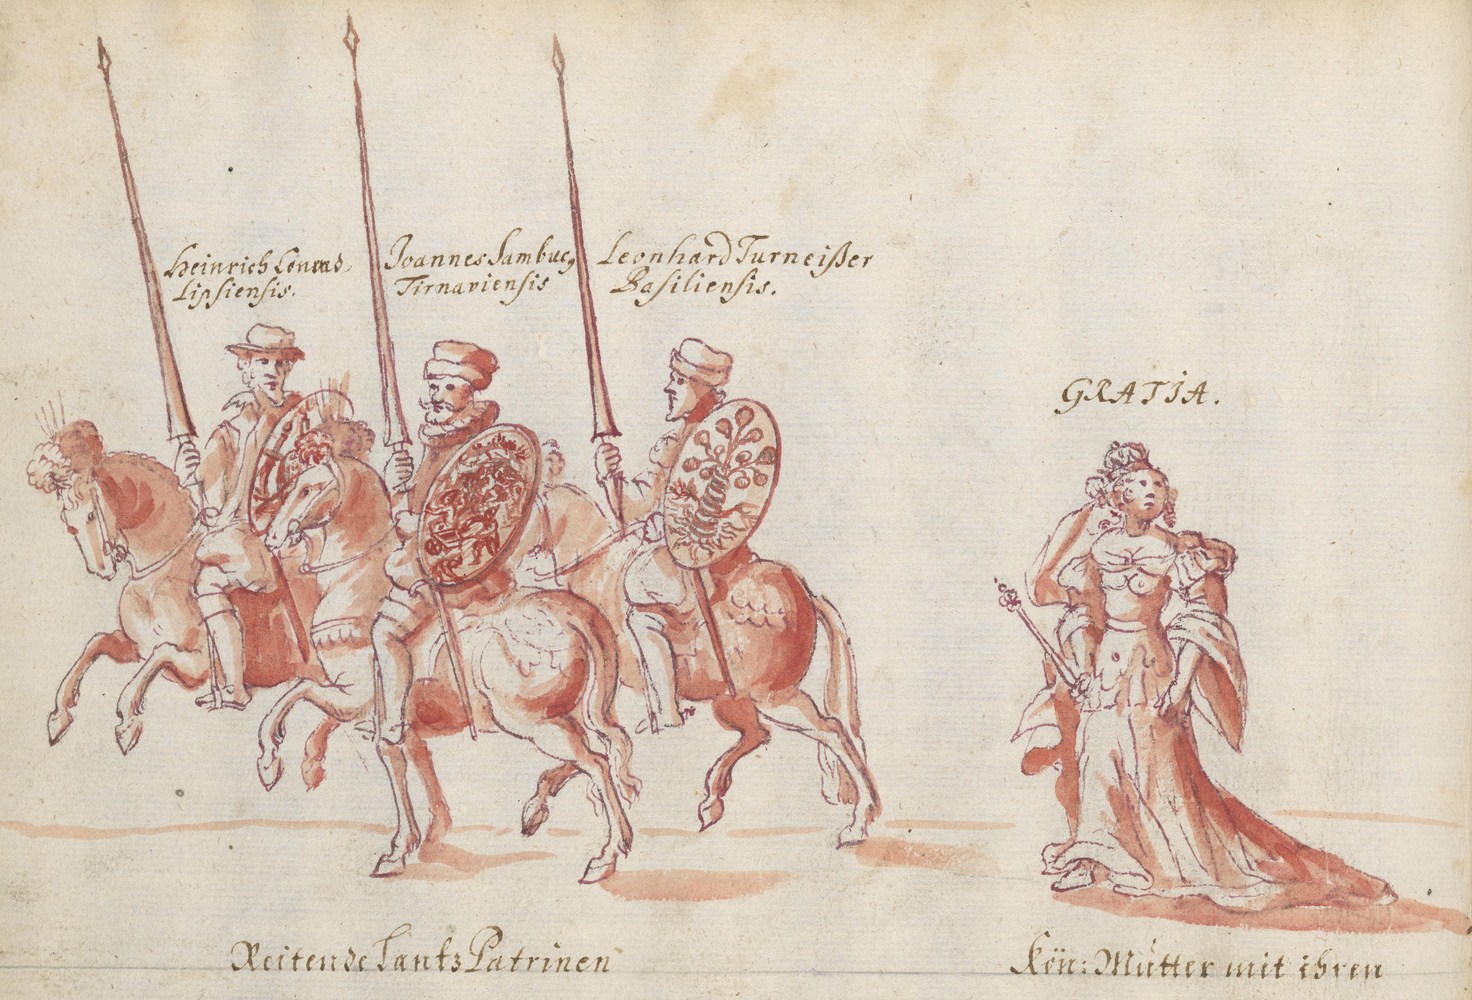 Heinrich Conrad
Lipsiensis.
Joannes Sambucꝰ
Tirnaviensis
Leonhard Turneißer
Basiliensis.
GRATIA.
Reitende Lantz Patrinen
Kön: Mütter mit ihren